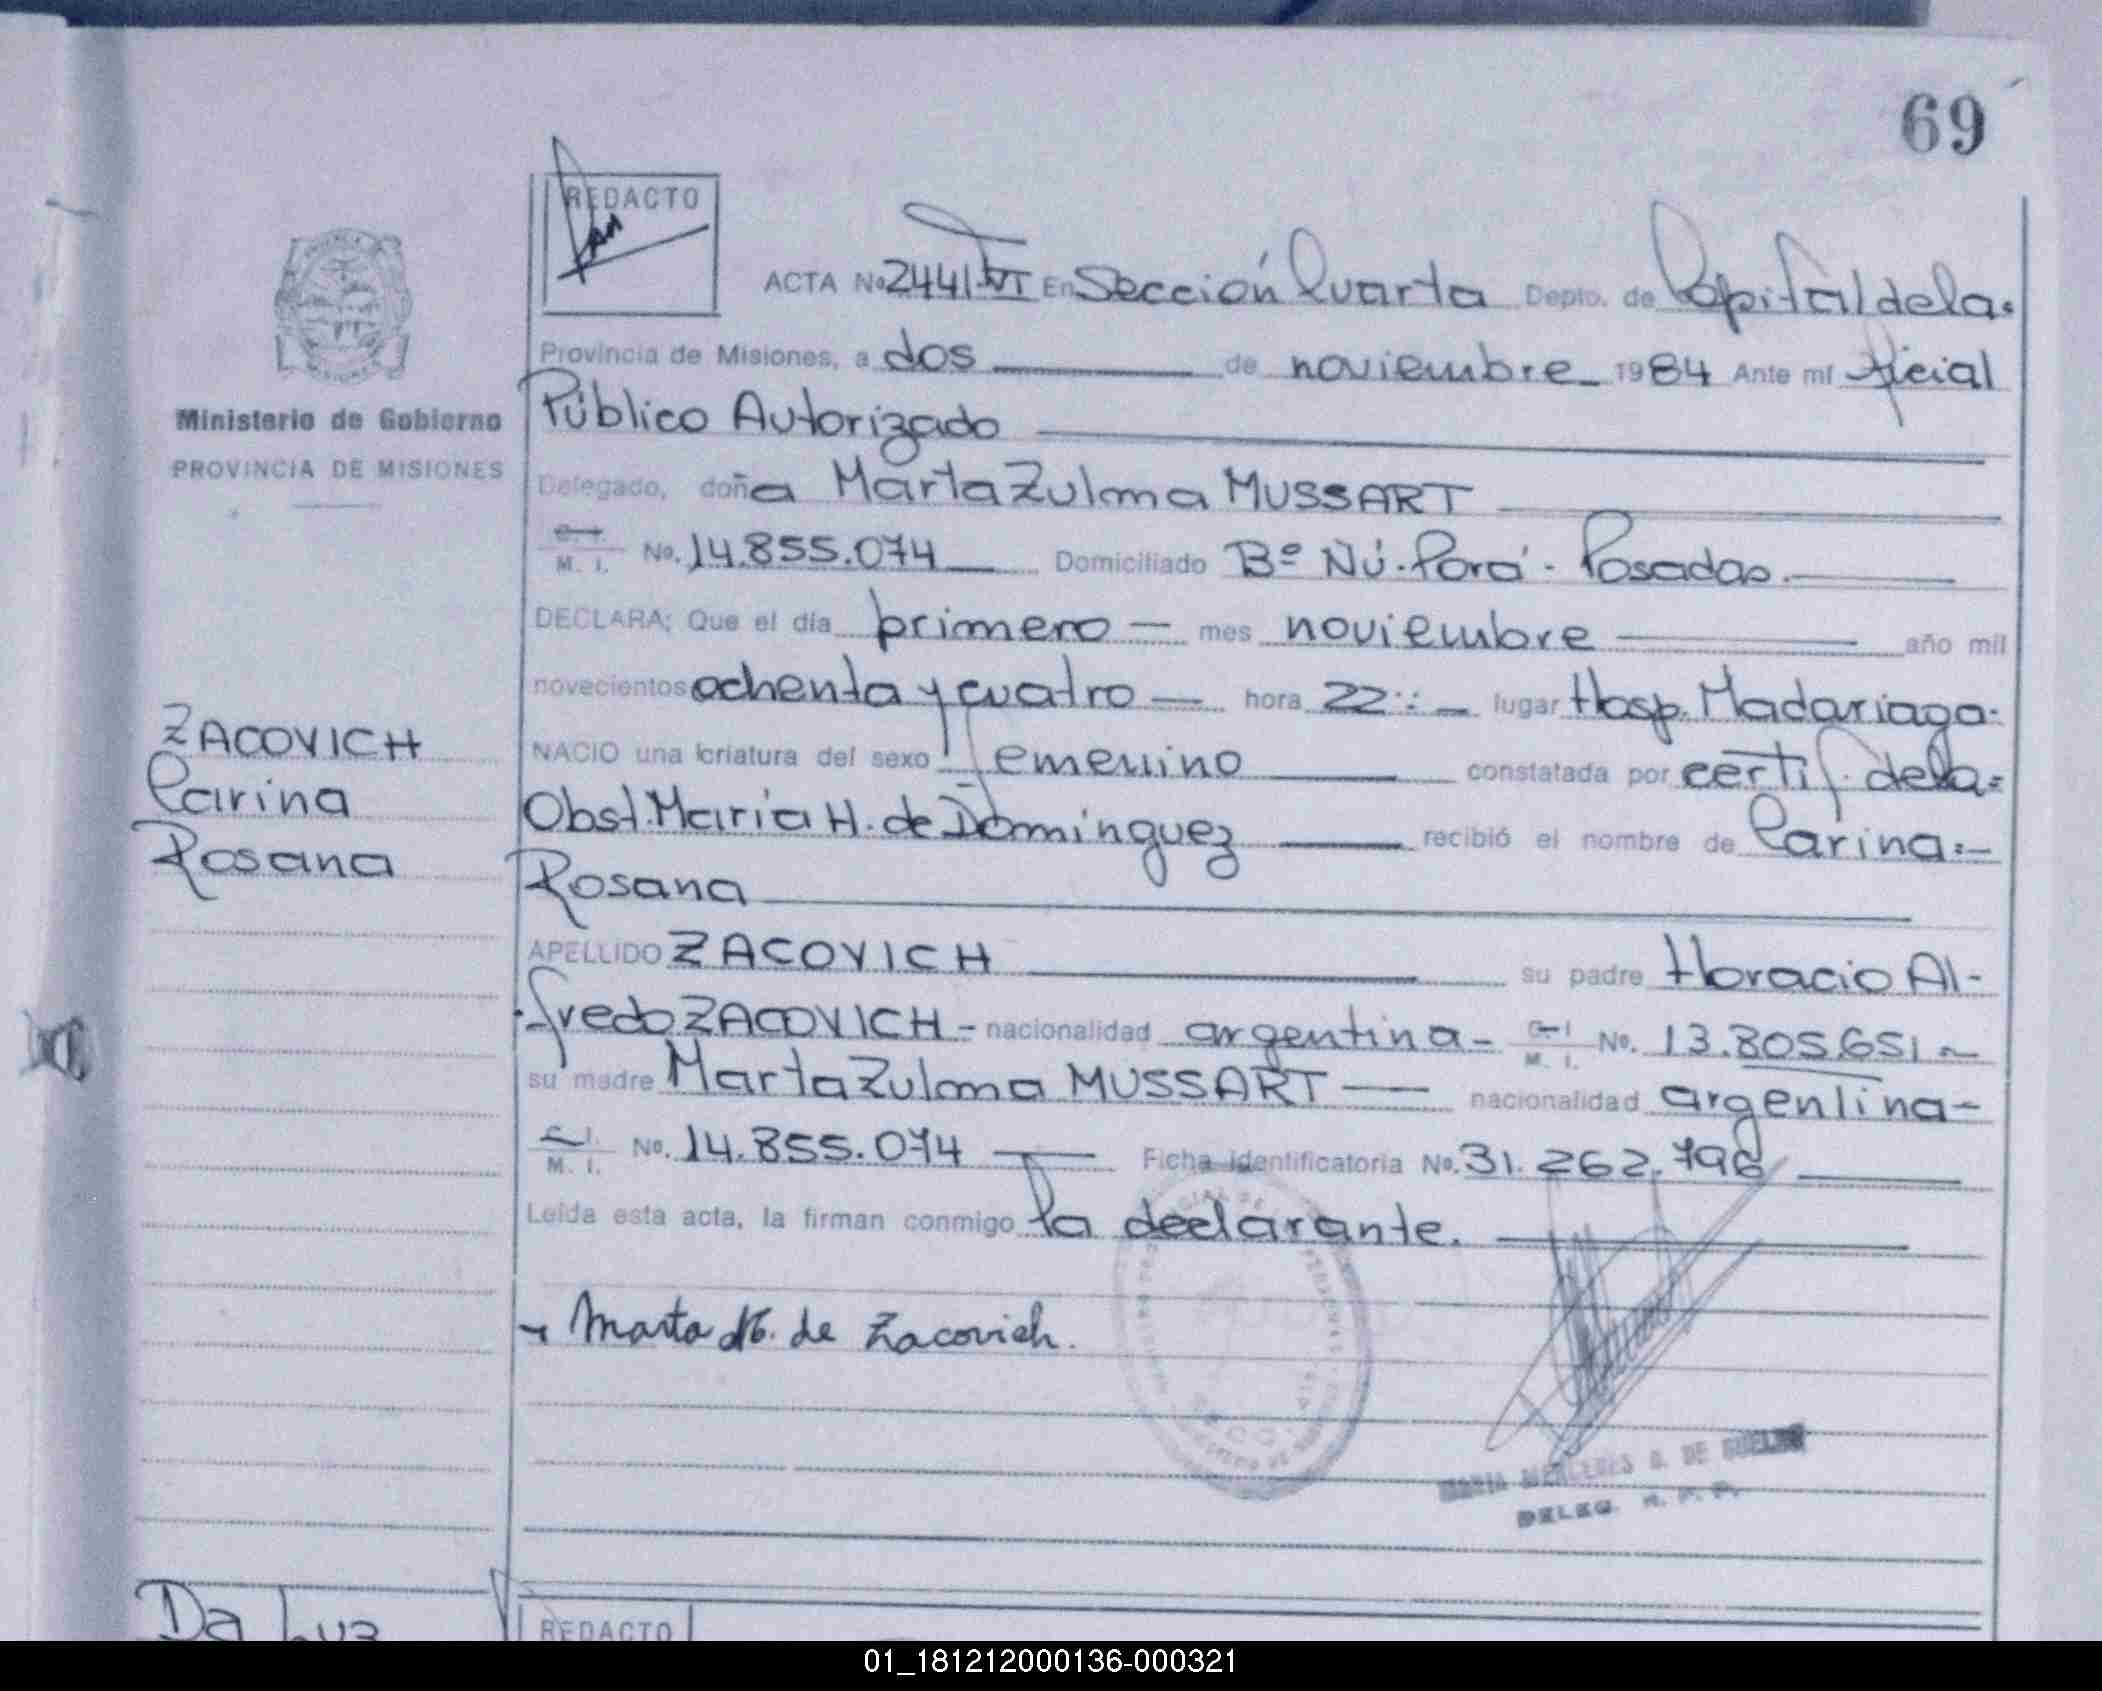 69
REDACTO
ACTA Nº 2441-VI En Sección Cuarta Depto. de Capital de la.
Provincia de Misiones, a dos de noviembre 1984 Ante mí Oficial
Ministerio de Gobierno
PROVINCIA DE MISIONES
Público Autorizado
Delegado, doña Marta Zulma MUSSART
C. I.
M. I. No. 14.855.074 Domiciliado Bº Ñú-Porá - Posadas.
DECLARA; Que el día primero - mes noviembre año mil
novecientos ochenta y cuatro - hora 22:- lugar Hosp. Madariaga.
NACIO una criatura del sexo femenino constatada por certif. de la=
Obst. María H. de Dominguez recibió el nombre de Carina:-
Rosana
ZACOVICH
Carina
Rosana
APELLIDO ZACOVICH su padre Horacio Al-
fredo ZACOVICH - nacionalidad argentina - C. I.
M. I. No. 13.805.651 -
su madre Marta Zulma MUSSART - nacionalidad argentina -
C. I.
M. I. No. 14.855.074 - Ficha identificatoria No. 31.262.796
Leída esta acta, la firman conmigo la declarante.
Marta de Zacovich.
MARIA MERCEDES DE
DELEG. R. P. P.
Da Luz
REDACTO
01_181212000136-000321